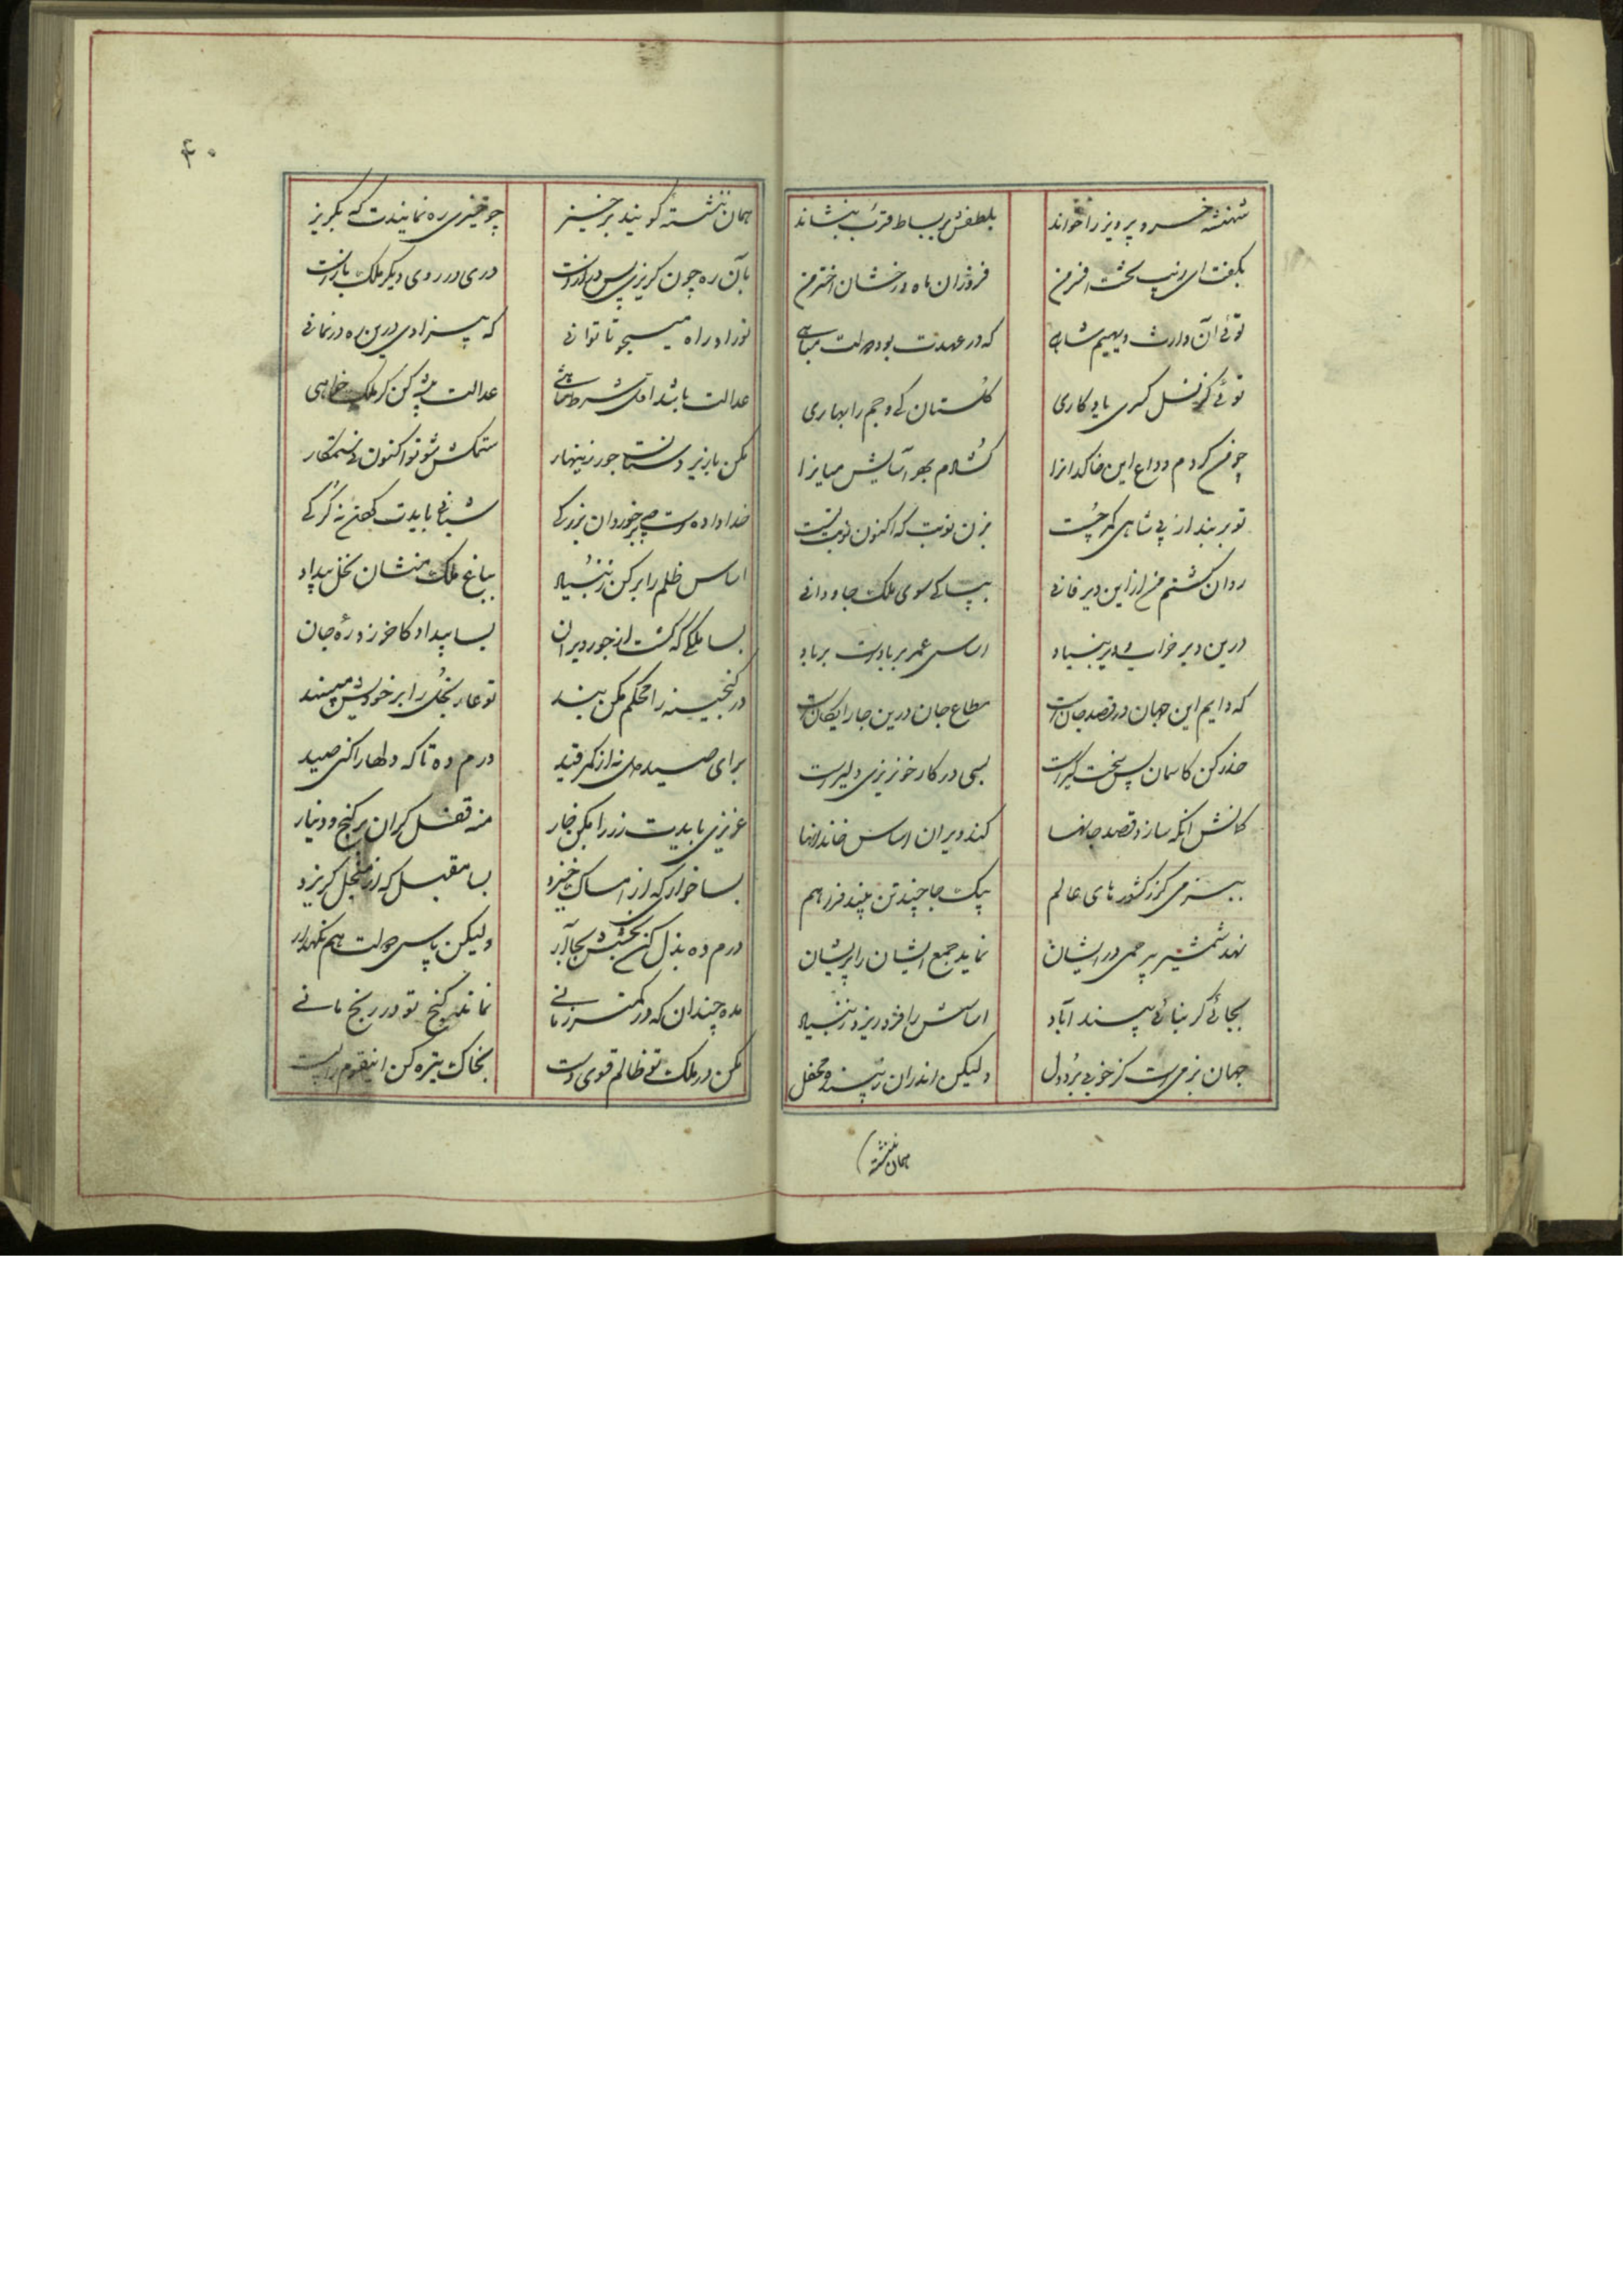 ۴۰
شهنشه خسرو پرویز را خواند
بلطفش بر بساط قرب بنشاند
بگفت ای زیب تخت افسر من
فروزان ماه و درخشان اختر من
توئی آن وارث دیهیم شاهی
که در عهدت بود دولت مباهی
توئی کز نسل کسری یادگاری
گلستان کی و جم را بهاری
چو من کردم وداع این خاکدانرا
گشادم بهر آسایش میانرا
تو بر بند از پی شاهی کمر چست
بزن نوبت که اکنون نوبت تست
روان گشتم من از این دیر فانی
بپاکی سوی ملک جاودانی
درین دیر خراب دیر بنیاد
اساس عمر بر بادست بر باد
که دایم این جهان در قصد جان است
مطاع جان درین جا رایگان است
حذر کن کاسمان پس سخت گیر است
بسی در کار خونریزی دلیر است
کمانش انکه سازد قصد جانها
کند ویران اساس خاندانها
ببزمی کز کشورهای عالم
بیک جا چند تن بیند فراهم
نهد شمشیر بیرحمی در ایشان
نماید جمع ایشان را پریشان
بجائی گر بنائی بیند آباد
اساسش را فرو ریزد ز بنیاد
جهان بزمی است کز خوبی برد دل
ولیکن اندران زیبنده محفل
همان ننشسته
همان ننشسته گویند برخیز
چو خیزی ره نمایندت که بگریز
بآن ره چون گریزی پس دراز است
دری در روی دیگر ملک باز است
تو زاد راه میجو تا توانی
که بیزادی درین ره در نمانی
عدالت باشد اول شرط شاهی
عدالت پیشه کن گر ملک خواهی
مکن با زیر دستان جور زینهار
ستمکش شو تو اکنون نی ستمکار
خدا داده است بر خوردان بزرگی
شبانی بایدت کردن نه گرگی
اساس ظلم را بر کن ز بنیاد
بباغ ملک منشان نخل بیداد
بسا ملکی که گشت از جور ویران
بسا بیداد کاخر زد ره جان
در گنجینه را محکم مکن بند
تو عار بخل را بر خویش مپسند
برای صید دل نه از کمر قید
درم ده تا که دلها را کنی صید
عزیزی بایدت زر را مکن خار
منه قفل گران بر گنج و دینار
بسا خواری که از امساک خیزد
بسا مقبل که از مدخل گریزد
درم ده بذل کن بخشش بجا آر
ولیکن پاس دولت هم نگهدار
مده چندان که در کمتر زمانی
نماند گنج تو در رنج مانی
مکن در ملک تو ظالم قوی دست
بخاک تیره کن اینقوم را پست